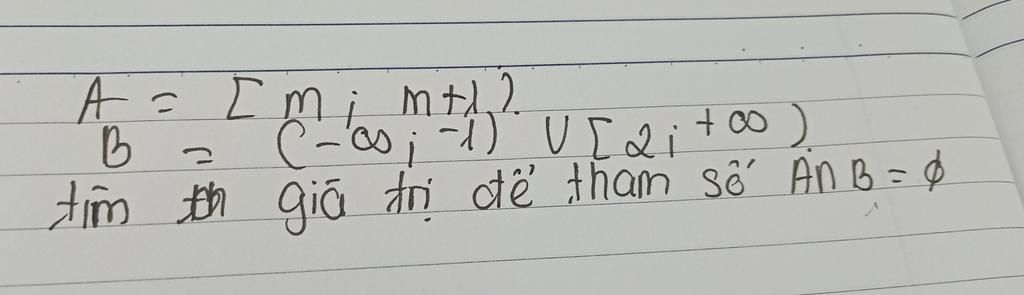 A = [ m ; m+1 ).
B = (-∞ ; -1) ∪ [ 2 ; +∞ )
tìm giā trị để tham số A∩B = ϕ